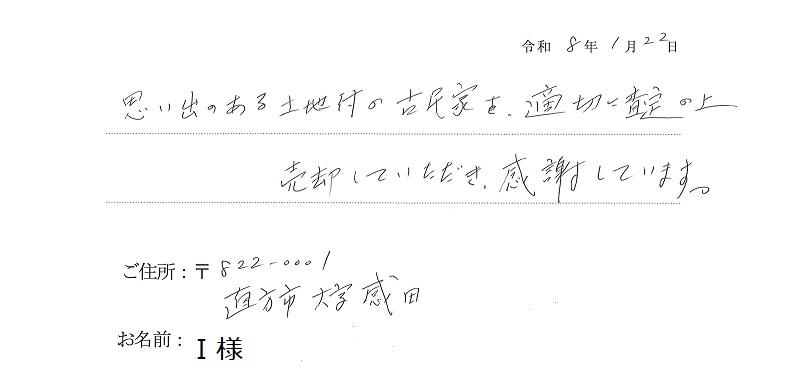 令和 8年 1月22日
思い出のある土地付の古民家を、適切に査定の上
売却していただき、感謝しています。
ご住所：〒822-0001
直方市大字感田
お名前：I 様